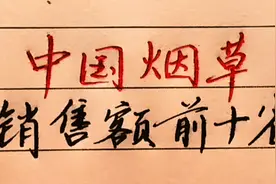 中国烟草
销售额前十省